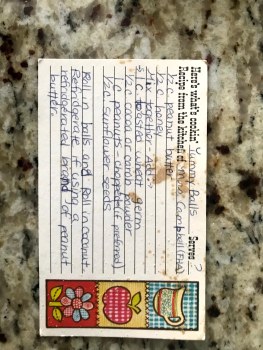 Here's what's cookin' Yummy Balls Serves ?
Recipe from the kitchen of Campbell (FHA)
1/2 c. honey
1/2 c. peanut butter
Mix together - Add:
wheat germ
1/2 c. carob powder
1/2 c. peanuts - chopped (if preferred)
1/2 c. sunflower seeds
Roll in balls and Roll in coconut
Refridgerate if using a
refridgerated brand of peanut
butter.